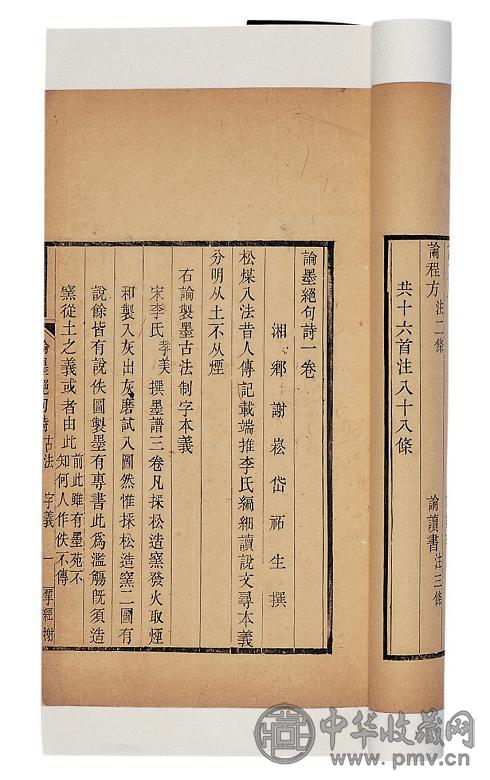 論程方注二條 論讀書注三條
共十六首注八十八條
論墨絕句詩一卷
湘鄉謝崧岱祐生撰
松煤八法昔人傳記載端推李氏編細讀說文尋本義
分明从土不从煙
右論製墨古法制字本義
宋李氏孝美撰墨譜三卷凡採松造窯發火取煙
和製入灰出灰磨試八圖然惟採松造窯二圖有
說餘皆有說佚圖製墨有專書此為濫觴旣須造
窯從土之義或者由此前此雖有墨苑不
知何人作佚不傳
論墨絕句詩 古法 字義 一 揅經榭
中华收藏网
www.pmv.cn